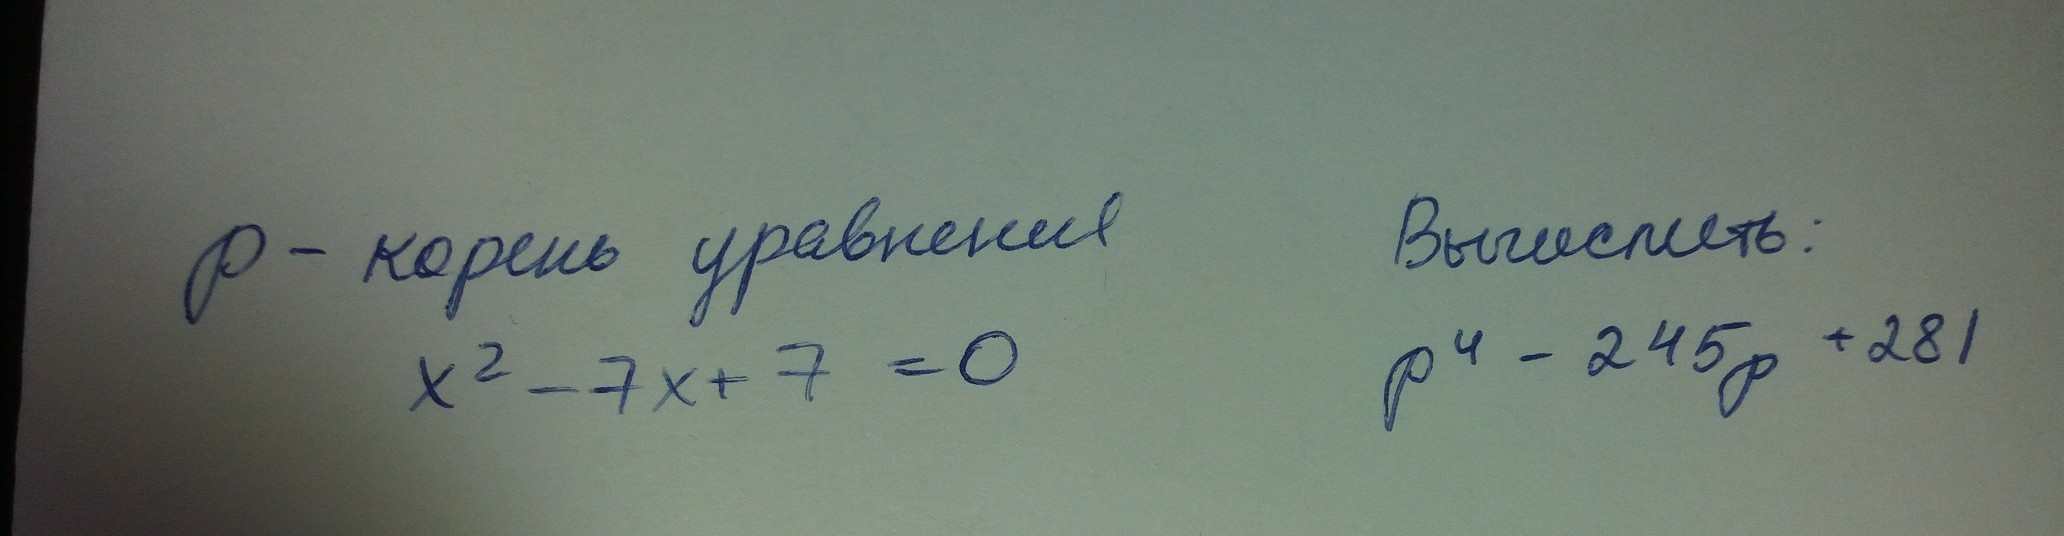 p - корень уравнения
x² - 7x + 7 = 0
Вычислить:
p⁴ - 245p + 281